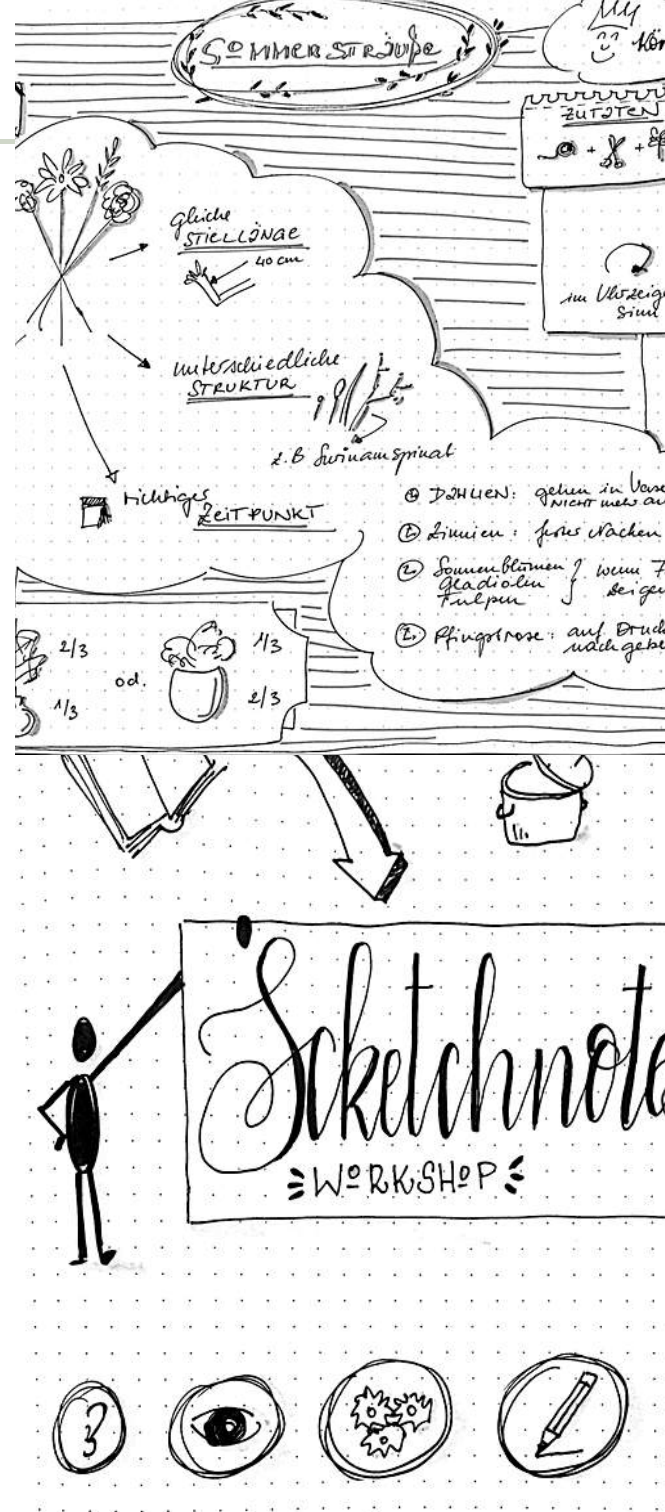 SOMMERSTRÄUßE
My
ZUTATEN
+ +
gleiche
STIELLÄNGE
40 cm
im Uhrzeige
Sinn
unterschiedliche
STRUKTUR
z.B Surinamspinat
richtiges
ZEITPUNKT
DAHLIEN: gehen in Vase
NICHT mehr au
Zinnien: Nacken
Sonnenblumen } wenn
Gladiolen
Tulpen
Pfingstrose: auf Druck
nachgebe
2/3
1/3
od.
1/3
2/3
Scketchnote
WORKSHOP